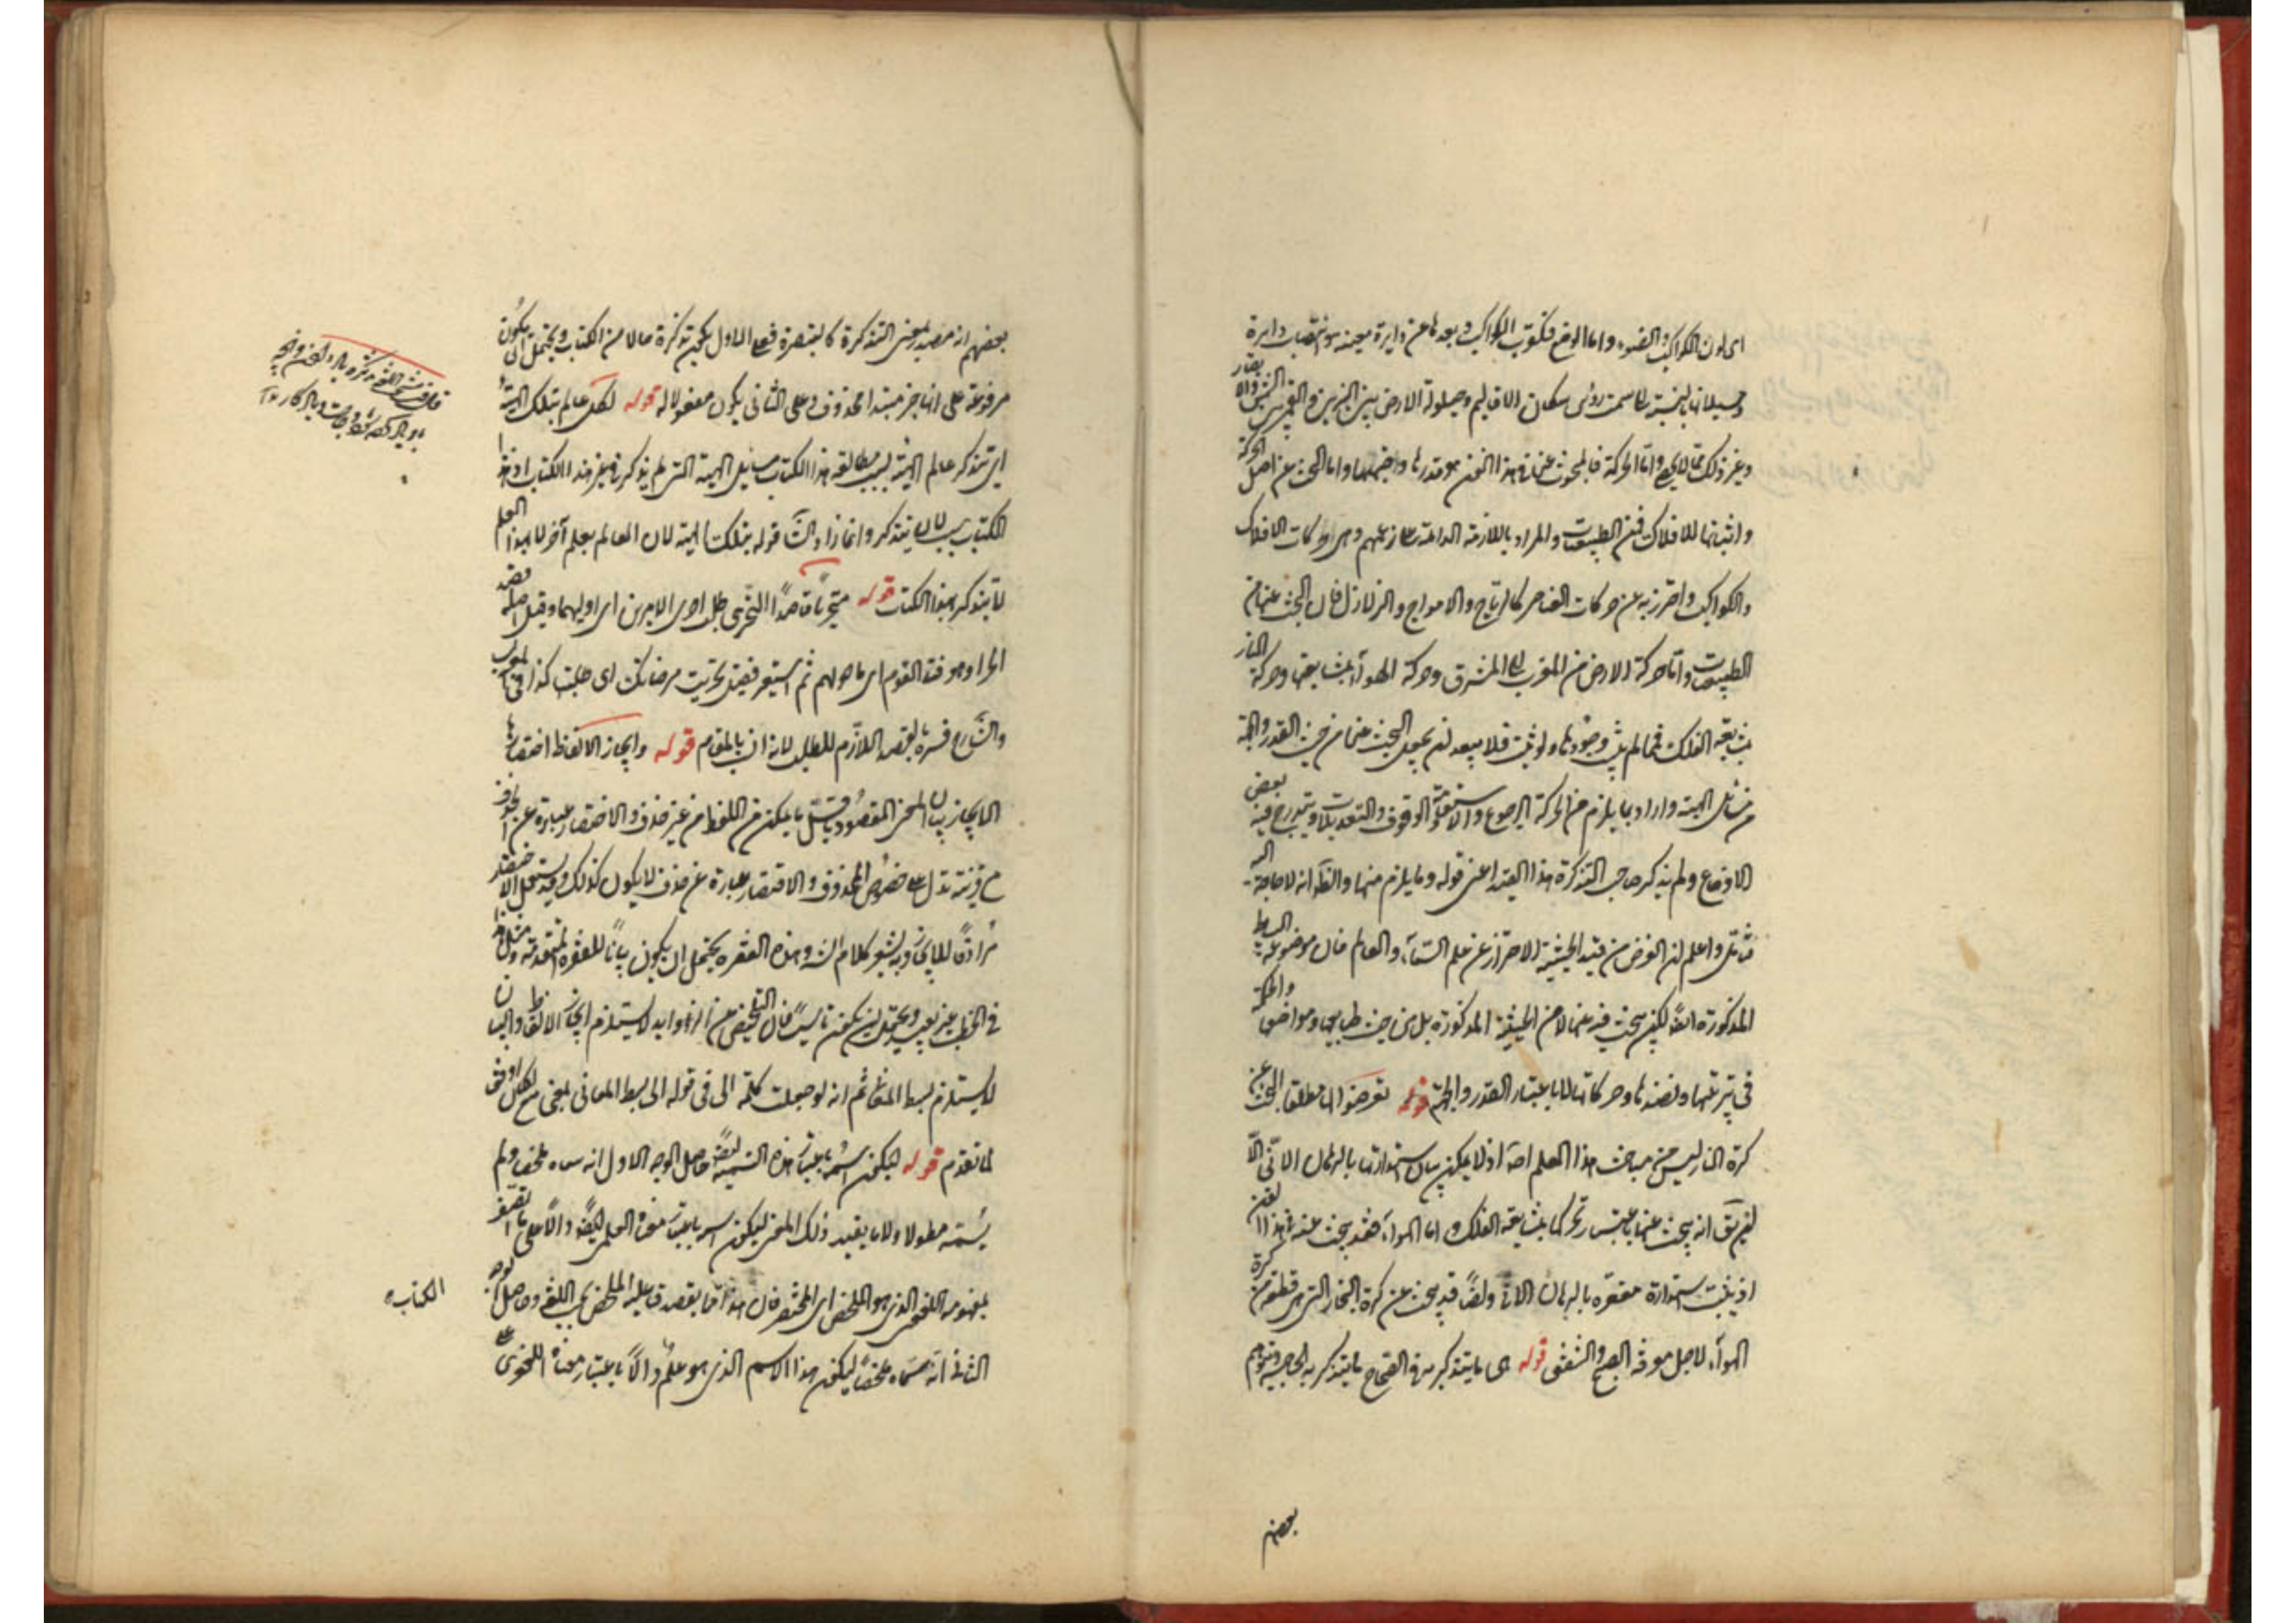 اى لون الكواكب والضوء واما الوضع فكقرب الكواكب وبعدها عن دايرة معينة هو انتصاب دايرة
وميلانها بالنسبة الى سمت رؤس سكان الاقاليم وحيلولة الارض بين النيرين والقمر بين الشمس والابصار
وغير ذلك مما لا يحصى واما الحركة فالمبحوث عنه فى هذا الفن هو قدرها وجهتها واما البحث عن اصل الحركة
واثباتها للافلاك فمن الطبيعيات والمراد باللازمة الدائمة على زعمهم وهى حركات الافلاك
والكواكب واحترز به عن حركات العناصر كالرياح والامواج والزلازل فان البحث عنها من
الطبيعيات واما حركة الارض من المغرب الى المشرق وحركة الهواء بمشايعتها وحركة النار
بمشايعة الفلك فمما لم يثبت وجودها ولو ثبت فلا يبعد ان يجعل البحث عنها من حيث القدر والجهة
من مسائل الهيئة واراد بما يلزم من الحركة الرجوع والاستقامة والوقوف والتعديلات ويندرج فيه بعض
الاوضاع ولم يذكر صاحب التذكرة هذا القيد اعنى قوله وما يلزم منها والظاهر انه لا حاجة اليه
فتأمل واعلم ان الغرض من قيد الحيثية الاحتراز عن علم السماء والعالم فان موضوعه البسايط
المذكورة ايضا لكن يبحث فيه عنها لا من الحيثية المذكورة بل من حيث طبايعها ومواضعها والحكمة
فى ترتيبها ونضدها وحركاتها لا باعتبار القدر والجهة قوله تعرضوا لها مطلقا البحث عن
كرة النار ليس من مباحث هذا العلم اصلا اذ لا يمكن بيان استدارتها بالبرهان الانى الا
ان يق انه يبحث عنها باعتبار تحركها بمشايعة الفلك واما الهواء فقد يبحث عنه فى هذا الفن
اذ يثبت استدارة مقعره بالبرهان الانى وايضا قد يبحث عن كرة البخار التى هى قطعة من كرة
الهواء لاجل معرفة الصبح والشفق قوله هى ما يتذكر به فى الصحاح ما يتذكر به الحاجة وتوهم
بعضهم
بعضهم انه مصدر بمعنى التذكرة كالتبصرة فعلى الاول يكون تذكرة حالا من الكتاب ويحتمل ان يكون
مرفوعة على انها خبر مبتدا محذوف وعلى الثانى يكون مفعولا له قوله لكل عالم بتلك الهيئة
اى يتذكر عالم الهيئة بسبب مطالعة هذا الكتاب مسايل الهيئة التى لم يذكر فى غير هذا الكتاب اذ هذا
الكتاب سبب لان يتذكر وانما زاد الشارح قوله بتلك الهيئة لان العالم بعلم آخر لا بهذا العلم
لا يتذكر بهذا الكتاب قوله متحريا قاصدا التحرى طلب احرى الامرين اى اوليهما وقيل اصله قصد
الحرا وهو فناء القوم اى ما حولهم ثم استعير فقيل تحريت مرضاتك اى طلبت كذا فى المغرب
والشارح فسره بالقصد اللازم للطلب لانه انسب بالمقام قوله وايجاز الالفاظ اختصارها
الايجاز بيان المعنى المقصود باقل ما يمكن من اللفظ من غير حذف والاختصار عبارة عن الحذف
مع قرينة تدل على خصوص المحذوف والاقتصار عبارة عن حذف لا يكون كذلك وقد يستعمل الاختصار
مرادفا للايجاز وبه يشعر كلام الش وهذه الفقره يحتمل ان يكون بيانا للفقره المتقدمة ومثل هذا
فى الخطب غير بعيد ويحتمل ان يكون تاسيسا فان التلخيص عن الزوايد لا يستلزم ايجاز الالفاظ والبيان
لا يستلزم بسط المعانى ثم انه لو جعلت كلمة الى فى قوله الى بسط المعانى بمعنى مع لكان اوفق
لما تقدم قوله ليكون اسمه باعتبار هذه التسمية ايضا حاصل الوجه الاول انه سماه ملخصا ولم
يسمه مطولا ولا ما يفيد ذلك المعنى ليكون اسمه باعتبار معناه العلمى ايضا دالا على اتصافه
بمفهومه اللغوى الذى هو الملخص اى المختصر فان هذا مما يقصد فيما عليه الملخص بحسب اللغة وحاصل الوجه
الثانى انه سماه ملخصا ليكون هذا الاسم الذى هو علم دالا باعتبار معناه اللغوى على
الكتاب